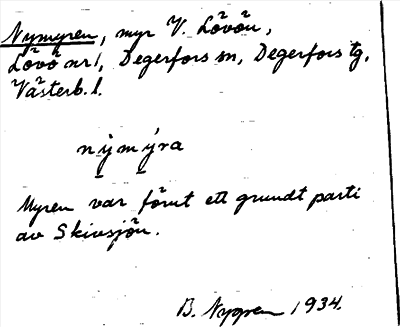 Nymyren, myr V. Lövön,
Lövö nr 1, Degerfors sn, Degerfors tg,
Västerb. l.
nỳmýra
Myren var förut ett grundt parti
av Skivsjön.
B. Nygren 1934.